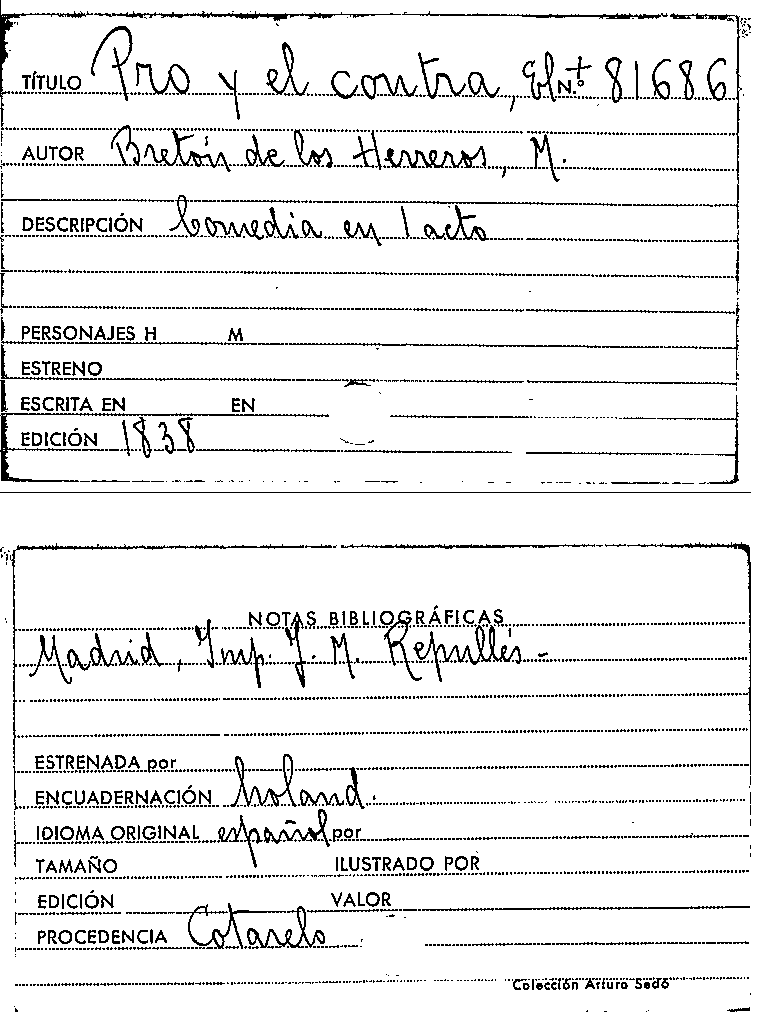 TÍTULO Pro y el contra, El N.º + 81686
AUTOR Bretón de los Herreros, M.
DESCRIPCIÓN Comedia en 1 acto
PERSONAJES H M
ESTRENO
ESCRITA EN EN
EDICIÓN 1838
NOTAS BIBLIOGRÁFICAS
Madrid, Imp. J. M. Repullés -
ESTRENADA por
ENCUADERNACIÓN holand.
IDIOMA ORIGINAL español por
TAMAÑO ILUSTRADO POR
EDICIÓN VALOR
PROCEDENCIA Cotarelo
Colección Arturo Sedó